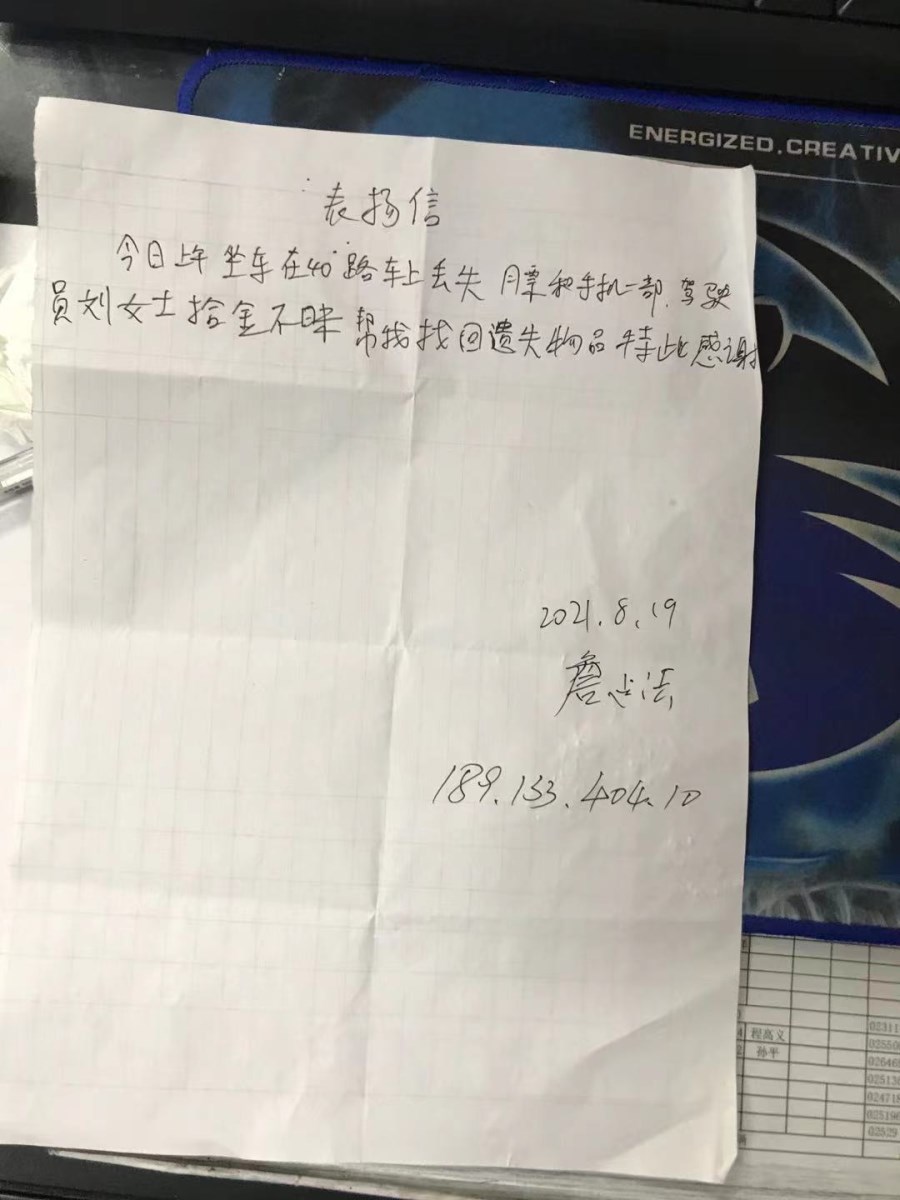 ENERGIZED.CREATIV
表扬信
今日上午坐车在40路车上丢失月票和手机一部.驾驶
员刘女士拾金不昧帮我找回遗失物品特此感谢
2021.8.19
詹志法
189.133.404.10
程高义
孙平
02311
02550
02646
02513
02471
02519
02529